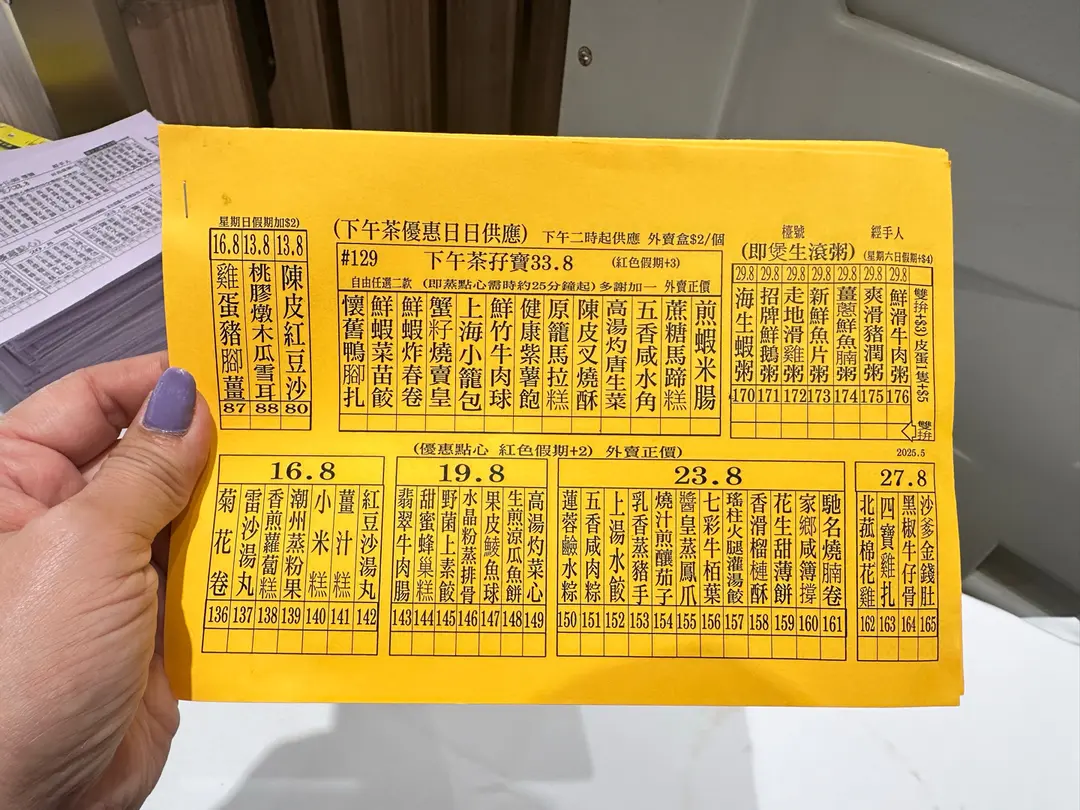 星期日假期加$2)
16.8
雞蛋豬腳薑
87
13.8
桃膠燉木瓜雪耳
88
13.8
陳皮紅豆沙
80
(下午茶優惠日日供應) 下午二時起供應 外賣盒$2/個
#129 下午茶孖寶33.8 (紅色假期+3)
自由任選二款 (即蒸點心需時約25分鐘起) 多謝加一 外賣正價
懷舊鴨腳扎
鮮蝦菜苗餃
鮮蝦炸春卷
蟹籽燒賣皇
上海小籠包
鮮竹牛肉球
健康紫薯飽
原籠馬拉糕
陳皮叉燒酥
高湯灼唐生菜
五香咸水角
蔗糖馬蹄糕
煎蝦米腸
檯號 經手人
(即煲生滾粥) (星期六日假期+$4)
29.8
海生蝦粥
170
29.8
招牌鮮鵝粥
171
29.8
走地滑雞粥
172
29.8
新鮮魚片粥
173
29.8
薑蔥鮮魚腩粥
174
29.8
爽滑豬潤粥
175
29.8
鮮滑牛肉粥
176
雙拚+$9)皮蛋1隻+$8
雙拚
2025.5
(優惠點心 紅色假期+2) 外賣正價)
16.8
菊花卷
136
雷沙湯丸
137
香煎蘿蔔糕
138
潮州蒸粉果
139
小米糕
140
薑汁糕
141
紅豆沙湯丸
142
19.8
翡翠牛肉腸
143
甜蜜蜂巢糕
144
野菌上素餃
145
水晶粉蒸排骨
146
果皮鯪魚球
147
生煎涼瓜魚餅
148
高湯灼菜心
149
23.8
蓮蓉鹼水粽
150
五香咸肉粽
151
上湯水餃
152
乳香蒸豬手
153
燒汁煎釀茄子
154
醬皇蒸鳳爪
155
七彩牛栢葉
156
瑤柱火腿灌湯餃
157
香滑榴槤酥
158
花生甜薄餅
159
家鄉咸簿撐
160
馳名燒腩卷
161
27.8
北菰棉花雞
162
四寶雞扎
163
黑椒牛仔骨
164
沙爹金錢肚
165